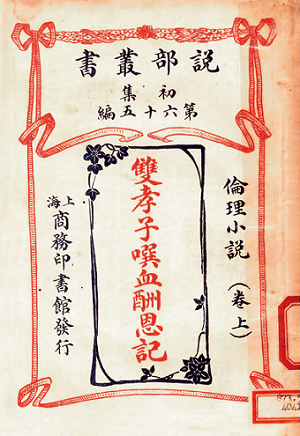 說部叢書
初集
第六十五編
倫理小說（卷上）
雙孝子噀血酬恩記
上海
商務印書館發行